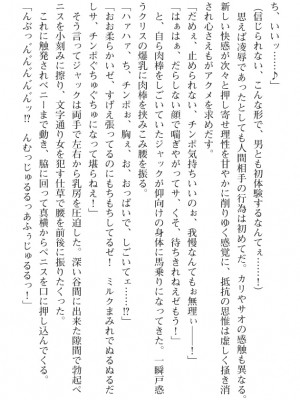 ち、いいッ……♪」
（信じられない、こんな形で、男とも初体験するなんてぇ……！）
　思えば凌辱であったとしても人間相手の行為は初めてだ。カリやサオの感触も異なる。
新しい快感が次々と押し寄せ理性を甘やかに削りゆく感覚に、抵抗の思惟は虚しく掻き消
され心さえもがアクメを求めだす。
「だめぇ、止められない、チンポ気持ちいいのぉ、我慢なんてもぉ無理ぃ――！」
「はぁはぁ、だらしない顔で喘ぎやがってや、くそ、待ちきれねえぜもう！」
　と、自ら肉棒をしごいていたジャックが仰向けの身体に馬乗りになってきた。一瞬戸惑
うクリスの爆乳に肉棒を挟みこみ腰を振る。
「ハァハァ、ち、チンポぉ、胸ぇ、お、おっぱいで、しごいてェ……！」
「おお柔らかいぜ、すげえ張ってるのにもちもちしてるぜ！　ミルクまみれでぬるぬるだ
しサ、チンポぐちゅぐちゅになって堪らねえ！」
　そう言ってジャックは両手で左右から乳房を圧迫した。深い谷間に出来た隙間で勃起ペ
ニスを小刻みに擦り、文字通り女を犯す仕草で腰を前後に振りたくった。
　これに触発されベニーまで動き、脇に回って真横からペニスを口に押し込んでくる。
「んぷっ、んんんんッ!?　んむっじゅるるっあふっじゅるるっ！」